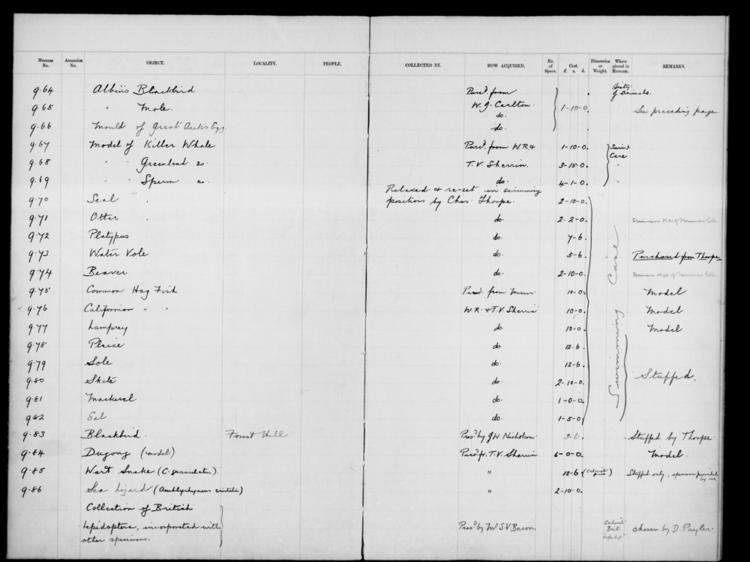 Museum No. Accession No. OBJECT. LOCALITY. PEOPLE. COLLECTED BY. HOW ACQUIRED. No. of Specs. Cost £ s. d. Dimension or Weight. Where placed in Museum. REMARKS.
9.64 Albino Blackbird Purd. from of Animals.
9.65 " Mole W. J. Carlton 1-10-0. See preceding page
9.66 Mould of Great Auk's Egg do. do.
9.67 Model of Killer Whale Purd. from W.R.& 1-10-0. Swim. Case
9.68 " " Greenland do. T.V. Sherrin. 3-15-0. "
9.69 " " Sperm do. do. 4-1-0.
9.70 Seal Relaxed & re-set in swimming positions by Chas. Thorpe. 2-10-0.
9.71 Otter do 2-2-0.
9.72 Platypus do. 7-6.
9.73 Water Vole do. 5-6. Purchased from Thorpe
9.74 Beaver do. 2-10-0.
9.75 Common Hag Fish Purd. from 10-0. Model
9.76 Californian " " W.R. & T.V. Sherrin 10-0. Model
9.77 Lamprey do 10-0. Model
9.78 Plaice do 12-6.
9.79 Sole do. 12-6.
9.80 Skate do. 2-10-0. Stuffed.
9.81 Mackerel do. 1-0-0.
9.82 Eel do. 1-5-0.
Swimming Case
9.83 Blackbird. Forest Hill Pres. by J.H. Nicholson. 3-6. Stuffed by Thorpe
9.84 Dugong (model) Purd. fr. T.V. Sherrin 5-0-0. Model.
9.85 Wart Snake (C. granulatus) " 12-6 Stuffed only, specimen provided by us.
9.86 Sea lizard (Amblyrhynchus cristatus) " 2-10-0.
Collection of British
Lepidoptera, incorporated with Pres. by Mr S.V. Bacon. chosen by D.
other specimens.